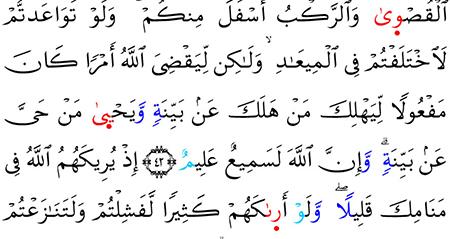 ٱلْقُصْوَىٰ وَٱلرَّكْبُ أَسْفَلَ مِنكُمْ ۚ وَلَوْ تَوَاعَدتُّمْ
لَٱخْتَلَفْتُمْ فِى ٱلْمِيعَٰدِ ۙ وَلَٰكِن لِّيَقْضِىَ ٱللَّهُ أَمْرًا كَانَ
مَفْعُولًا لِّيَهْلِكَ مَنْ هَلَكَ عَنۢ بَيِّنَةٍ وَيَحْيَىٰ مَنْ حَىَّ
عَنۢ بَيِّنَةٍ ۗ وَإِنَّ ٱللَّهَ لَسَمِيعٌ عَلِيمٌ ﴿٤٢﴾ إِذْ يُرِيكَهُمُ ٱللَّهُ فِى
مَنَامِكَ قَلِيلًا ۖ وَلَوْ أَرَىٰكَهُمْ كَثِيرًا لَّفَشِلْتُمْ وَلَتَنَٰزَعْتُمْ